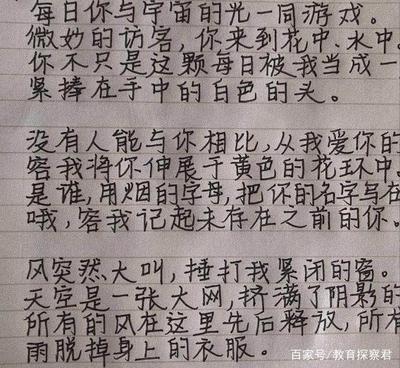 每日你与宇宙的光一同游戏。
微妙的访客,你来到花中、水中。
你不只是这颗每日被我当成一
紧捧在手中的白色的头。
没有人能与你相比,从我爱你的
容我将你伸展于黄色的花环中。
是谁,用烟的字母,把你的名字写在
哦,容我记起未存在之前的你。
风突然大叫,捶打我紧闭的窗。
天空是一张大网,挤满了阴影的
所有的风在这里先后释放,所有
雨脱掉身上的衣服。
百家号/教育探察君